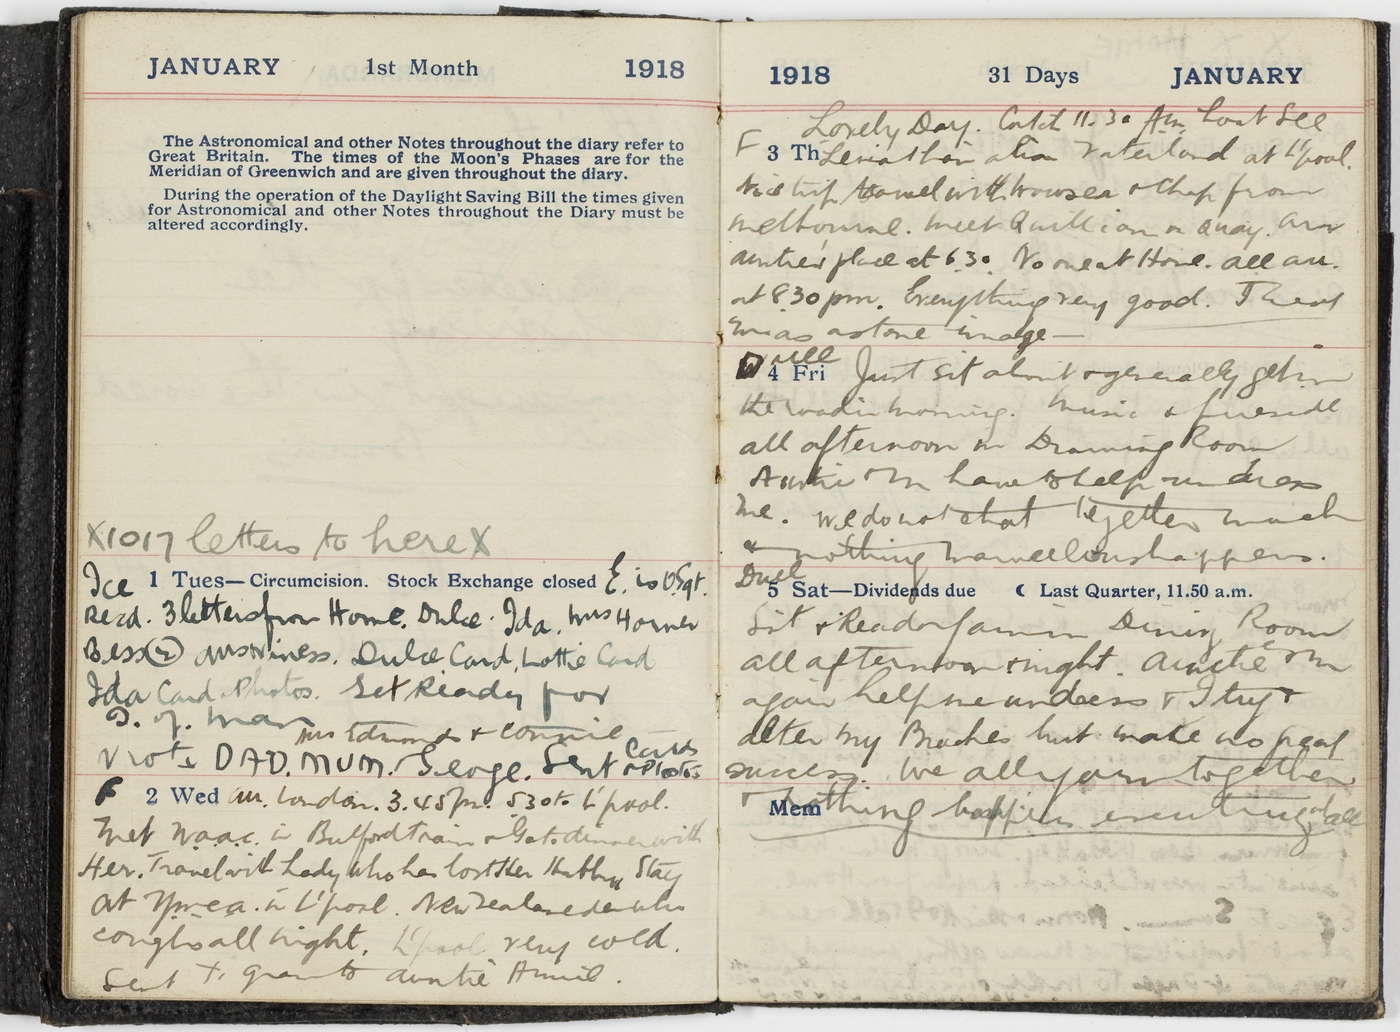 JANUARY 1st Month 1918
The Astronomical and other Notes throughout the diary refer to
Great Britain. The times of the Moon's Phases are for the
Meridian of Greenwich and are given throughout the diary.
During the operation of the Daylight Saving Bill the times given
for Astronomical and other Notes throughout the Diary must be
altered accordingly.
X1017 letters to hereX
Ice 1 Tues—Circumcision. Stock Exchange closed E. is O.Sgt.
Recd. 3 letters from Home. Dulce. Ida. Mrs Horner
Bess(2) Mrs Viness. Dulce Card, Lottie Card
Ida Card & Photos. Get Ready for
I. of. Man
Mrs Edmonds & Connie
Wrote DAD. MUM. George. Sent Cards
& Photos
F 2 Wed arr. London. 3.45pm. 530 to L'pool.
Met Waac. in Bulford train & Go to dinner with
Her. Travel with Lady who has lost Her Hubby. Stay
at Ymca. in L'pool. New Zealander who
coughs all night. L'pool very cold.
Sent gram to Auntie Annie.
1918 31 Days JANUARY
Lovely Day. Catch 11.30 Am boat See
F 3 Th Leviathan alias Vaterland at L'pool.
Nice trip travel with & Chap from
Melbourne. Meet Quilliam on Quay. Arr
Aunties' place at 6.30. No one at Home. all arr.
at 8.30 pm. Everything very good. Treat
Em as a stone image—
Dull
4 Fri Just sit about & generally get in
the road in morning. Music & fireside
all afternoon in Drawing Room
Auntie & Em have to help undress
me. We do not chat together much
& nothing marvellous happens.
Dull
5 Sat—Dividends due ☾ Last Quarter, 11.50 a.m.
Sit & Read or in Dining Room
all afternoon & night. Auntie & Em
again help me undress & I try &
alter my Breeches but make no great
success. We all yarn together
Mem
& nothing happens exciting at all